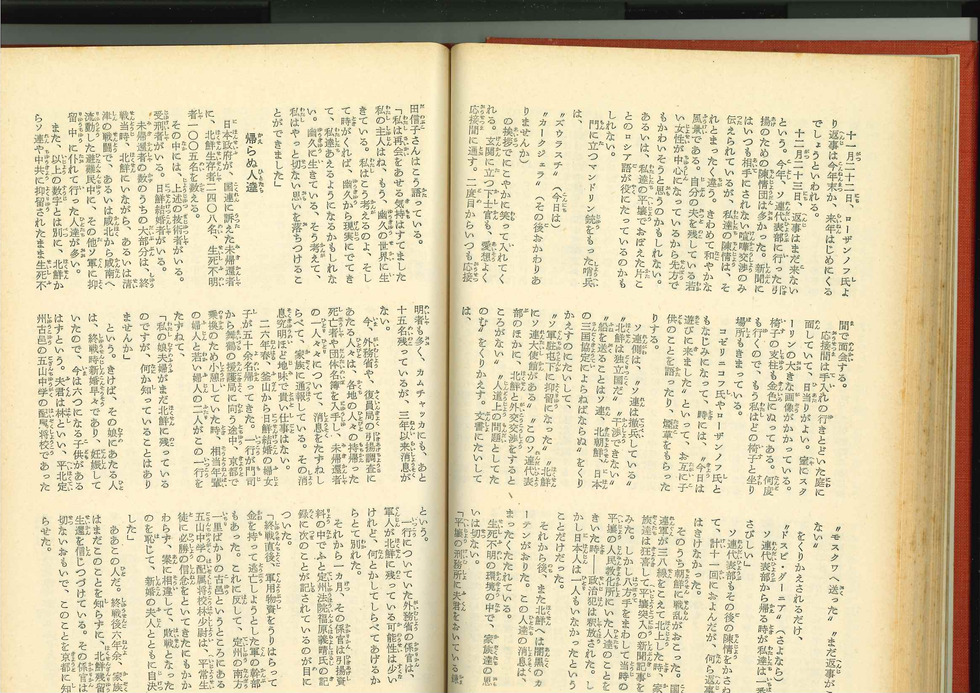 十一月二十二日、ローザンノフ氏よ
り返事は今年末か、来年はじめにくる
でしょうといわれる。
十二月二十三日、返事はまだ来ない
という。今年、ソ連代表部に行った引
揚のための陳情団は多かった。新聞に
はいつも相手にされない喧嘩交渉のみ
伝えられているが、私達の陳情は、そ
れとまったく違う。きわめて和やかな
風景である。自分の夫を残している若
い女性が中心になっているから先方で
もかわいそうと思うのかもしれない。
あるいは、私達の平壌でおぼえた片こ
とのロシア語が役にたっているのかも
しれない。
門に立つマンドリン銃をもった哨兵
も、
〝ズウラスチ〟（今日は）
〝カークジェラ〟（その後おかわりあ
りませんか）
の挨拶でにこやかに笑って入れてく
れる。玄関に立つ下士官も、愛想よく
応接間に通す。二度目からいつも応接
間で面会する。
応接間は手入れの行きとどいた庭に
面していて、日当りがよい。室にスタ
ーリンの大きな画像がかかっている。
椅子の支柱も金色にぬってある。何度
も行くので、もう私はどの椅子と坐り
場所もきまっている。
コゼリョコフ氏やローザンノフ氏と
もなじみになって、時には、〝今日は
遊びに来ました〟といって、お互に子
供のことを語ったり、煙草をもらった
りする。
ソ連側は、〝ソ連は撤兵している〟
〝北鮮は独立国だ〟〝干渉できない〟
〝船を送ることはソ連、北朝鮮、日本
の三国協定によらねばならぬ〟をくり
かえすのにたいして、
〝ソ軍駐屯中に抑留になった〟〝北鮮
にソ連大使館がある〟〝このソ連代表
部のほかに、北鮮と外交交渉をすると
ころがない〟〝人道上の問題としてた
のむ〟をくりかえす。文書にたいして
は、
〝モスクワへ送った〟〝まだ返事がこ
ない〟
をくりかえされるだけ、
〝ドスビ・ダーニア〟（さよなら）
ソ連代表部から帰る時が私達は一番
さびしい。
ソ連代表部もその後の陳情をかさね
て、計十一回におよんだが、何ら返事
はきけなかった。
そのうち朝鮮に戦乱がおこった。国
連軍が三八線をこえて北上した時、家
族達は狂喜して平壌突入の新聞記事を
みた。しかし八方手をまわして当時の
平壌の人民教化所にいた人達のことを
きいた時――政治犯は釈放された。し
かし日本人は一人もいなかったという
ことだけだった。
それから、また北鮮へは闇黒のカ
ーテンがおりた。この人達の消息は、
まったくたたれている。
生死不明の環境の中で、家族達の思
いは切ない。
「平壌の刑務所に夫君をおいている鎌
田信子さんはこう語っている。
「私は再会をあせる気持はすてました
私の主人はね、もう、幽久の世界に生
きている。私はこう考えるのよ、そし
て時がくれば、幽久から現実にでてき
て、私達とあえるようになるかもしれな
い。幽久に生きている、そう考えて、
私はやっと切ない思いを落ちつけるこ
とができました」
帰らぬ人達
日本政府が、国連に訴えた未帰還者
に、北鮮生存者二四〇八名、生死不明
者一〇〇五名を数える。
その中には、上述の技術者がいる。
受刑者がいる。日鮮結婚者がいる。
未帰還者の数のうちの大部分は、終
戦当時、北鮮にいながら、あるいは清
津の戦闘で、あるいは咸北から咸南へ
流動した避難民中に、その他ソ軍に抑
留中に仆れて行った人達が多い。
また、以上の数字とは別に、北鮮か
らソ連や中共に抑留されたまま生死不
明者も多く、カムチャッカにも、あと
十五名残っているが、三年以来消息が
ない。
今、外務省や、復員局の引揚調査に
あたる人々は、各地の人々の持帰った
死亡者や団体名簿を入手し、未帰還者
の一人々々について、消息をたずねし
らべて、家族に通報している。その消
息究明ほど地味で貴い仕事はない。
二六年春、釜山から日鮮結婚の婦女
子が五十名帰ってきた。一行が門司
から舞鶴の援護局に向う途中、京都で
乗換のため小憩していた時、相当年輩
の婦人と若い婦人の二人がこの一行を
たずねて、
「私の娘夫婦がまだ北鮮に残っている
のですが、何か知っていることはあり
ませんか」
という。きけば、その娘にあたる人
は、終戦時新婚早々であり、妊娠して
いたので、今は六つになる子供がある
はずという。夫君は林といい、平北定
州古邑の五山中学の配属将校であった
という。
一行についていた外務省の係官は、
軍人が北鮮に残っている可能性は少い
けれど、何とかしてしらべてあげるか
らとて別れた。
それから一カ月、その係官は引揚資
料の中でふと定州法院福原義晴氏の記
録に次のことが記されているのが目に
ついた。
「終戦直後、軍用物資をうりはらって
金を持って逃亡しようとした軍の幹部
もあった。これに反して、定州の南方
一里ばかりの古邑というところにある
五山中学の配属将校林少尉は、平常生
徒に必勝の信念をといてきたにもかか
わらず、案に相違して、敗戦となった
のを恥じて、新婚の夫人とともに自決
した」
ああこの人だ。終戦後六年余、家族
はまだこのことを知らずに、北鮮残留
生還を信じつづけている。その係官は
切ないおもいで、このことを京都に知
らせた。